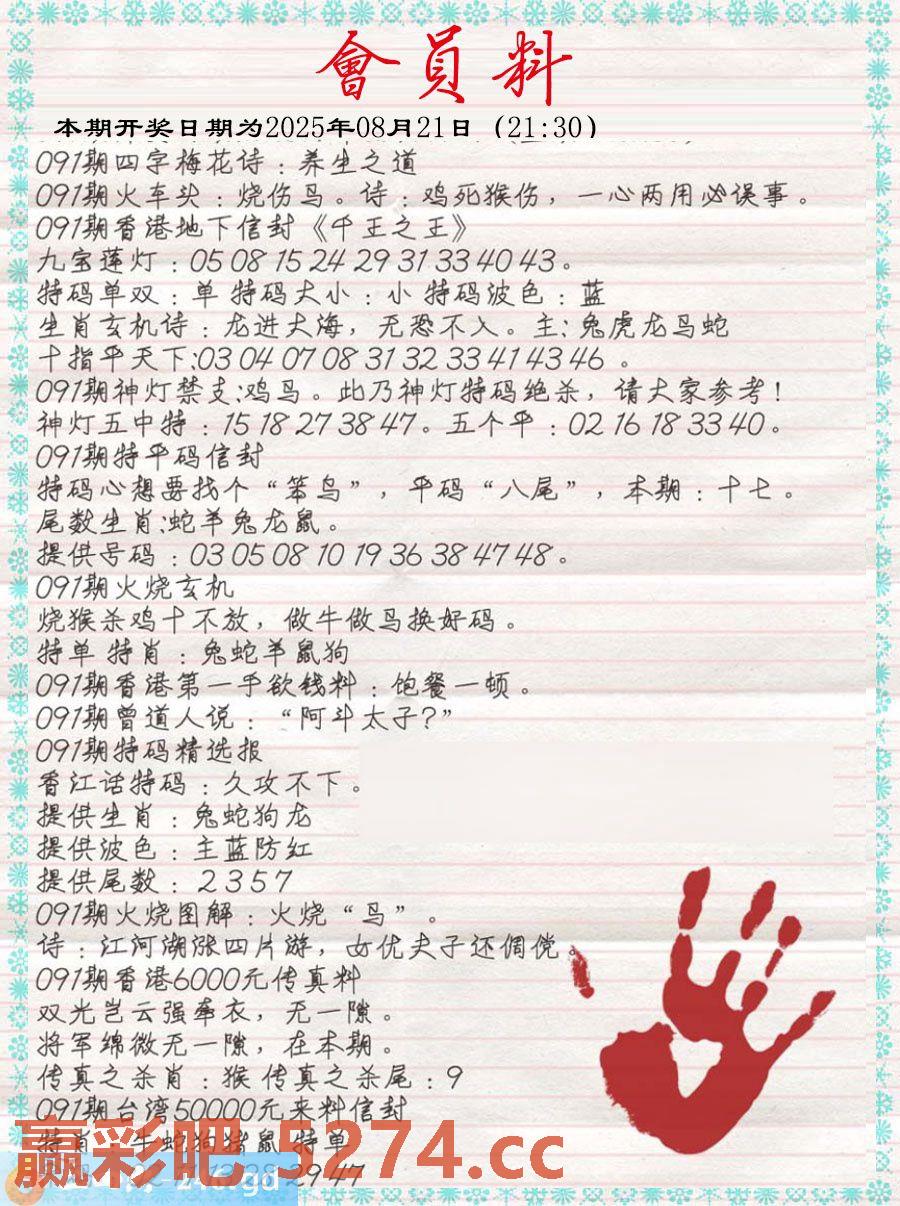 會員料
本期开奖日期为2025年08月21日（21:30）
091期四字梅花诗：养生之道
091期火车头：烧伤鸟。诗：鸡死猴伤，一心两用必误事。
091期香港地下信封《千王之王》
九宝莲灯：05 08 15 24 29 31 33 40 43。
特码单双：单 特码大小：小 特码波色：蓝
生肖玄机诗：龙进大海，无恐不入。主:兔虎龙鸟蛇
十指平天下:03 04 07 08 31 32 33 41 43 46 。
091期神灯禁支:鸡鸟。此乃神灯特码绝杀，请大家参考！
神灯五中特：15 18 27 38 47。五个平：02 16 18 33 40。
091期特平码信封
特码心想要找个“笨鸟”，平码“八尾”，本期：十七。
尾数生肖:蛇羊兔龙鼠。
提供号码：03 05 08 10 19 36 38 47 48。
091期火烧玄机
烧猴杀鸡十不放，做牛做鸟换好码。
特单 特肖：兔蛇羊鼠狗
091期香港第一手欲钱料：饱餐一顿。
091期曾道人说：“阿斗太子？”
091期特码精选报
香江话特码：久攻不下。
提供生肖：兔蛇狗龙
提供波色：主蓝防红
提供尾数：2 3 5 7
091期火烧图解：火烧“鸟”。
诗：江河湖涨四片游，女优夫子还倜傥。
091期香港6000元传真料
双光岂云强牵衣，无一隙。
将军绵微无一隙，在本期。
传真之杀肖：猴 传真之杀尾：9
091期台湾50000元来料信封
特肖：牛蛇狗猪鼠 特单
29 47
赢彩吧.5274.cc